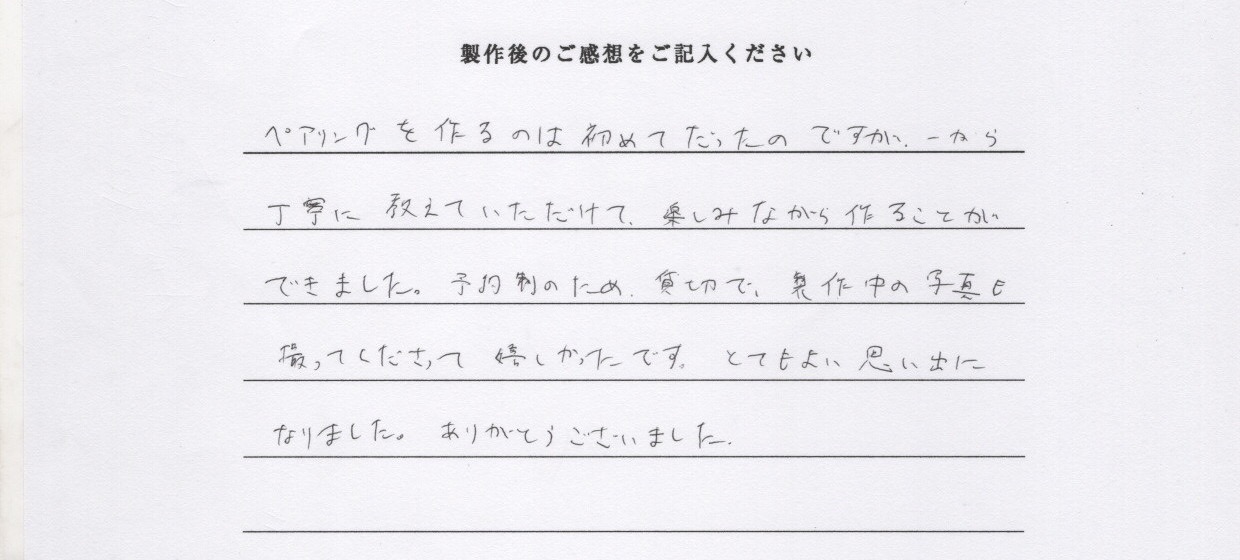 製作後のご感想をご記入ください
ペアリングを作るのは初めてだったのですが、一から
丁寧に教えていただけて、楽しみながら作ることが
できました。予約制のため、貸切で、製作中の写真も
撮ってくださって嬉しかったです。とてもよい思い出に
なりました。ありがとうございました。